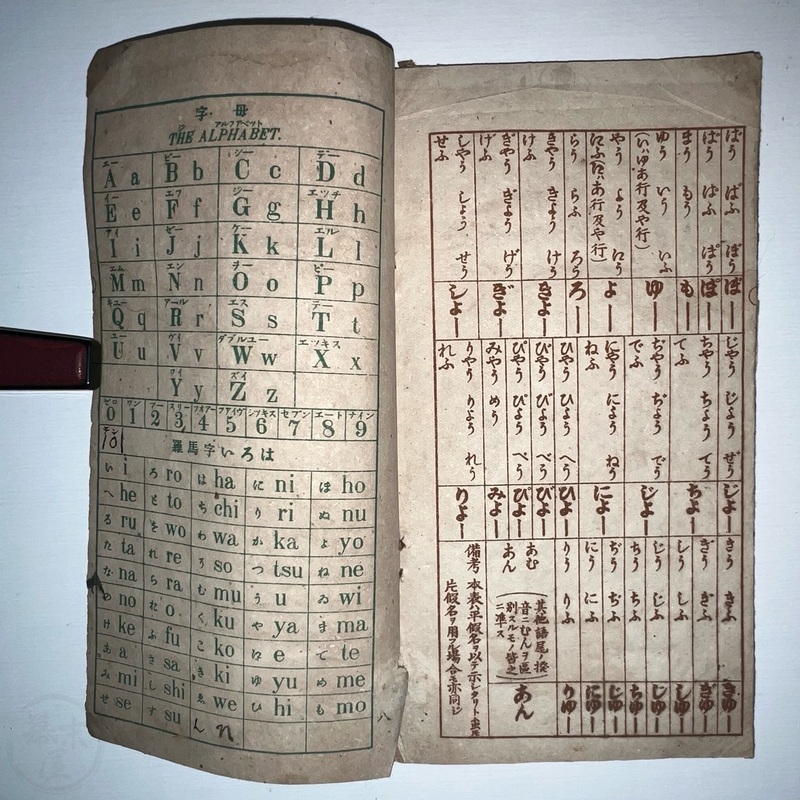 字母
THE ALPHABET.
ジ アルファベット
エー ビー シー デー
A a B b C c D d
イー エフ ジー エッチ
E e F f G g H h
アイ ゼー ケー エル
I i J j K k L l
エム エン オー ピー
M m N n O o P p
キユー アール エス テー
Q q R r S s T t
ユー ヴイ ダブルユー エッキス
U u V v W w X x
ワイ ズイ
Y y Z z
0 1 2 3 4 5 6 7 8 9
羅馬字いろは
い i ろ ro は ha に ni ほ ho
へ he と to ち chi り ri ぬ nu
る ru を wo わ wa か ka よ yo
た ta れ re そ so つ tsu ね ne
な na ら ra む mu う u ゐ wi
の no お o. く ku や ya ま ma
け ke ふ fu こ ko え e て te
あ a さ sa き ki ゆ yu め me
み mi し shi ゑ we ひ hi も mo
せ se す su ん n
八
ばう ばふ ぼう ぼー
ぱう ぱふ ぽう ぽー
まう もう もー
ゆう いう いふ ゆー
(い、ゆあ行及や行)
やう よう にう よー
にふ(にハあ行及や行)
らう らふ ろう ろー
きやう きよう けう けふ きよー
ぎやう ぎよう げう げふ ぎよー
しやう しよう せう せふ しよー
じやう じよう ぜう じよー
ちやう ちよう てう てふ ちよー
ぢやう ぢよう でう でふ じよー
にやう によう ねう ねふ によー
ひやう ひよう へう ひよー
びやう びよう べう びよー
ぴやう ぴよう ぺう ぴよー
みやう めう みよー
りやう りよう れう れふ りよー
きう きふ きゆー
ぎう ぎふ ぎゆー
しう しふ しゆー
じう じふ じゆー
ちう ちふ ちゆー
ぢう ぢふ じゆー
にう にふ にゆー
りう りふ りゆー
あむ あん あん
其他語尾ノ撥
音ニむんヲ區
別スルモノ皆之
ニ準ス
備考 本表ハ平假名ヲ以テ示シタリト雖モ
片假名ヲ用フル場合モ亦同ジ